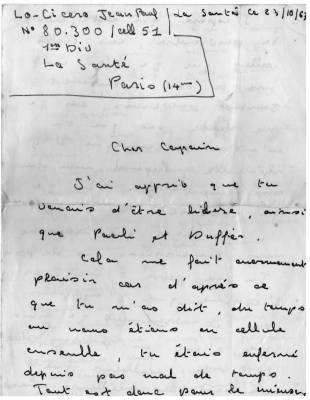 Lo-Cicero Jean Paul / La Santé ce 23/10/63
N° 80.300 / cell 51
1ère Div
La Santé
Paris (14ème)
Cher
J'ai appris que tu
venais d'être libéré, ainsi
que Paoli et
Cela me fait énormément
plaisir car d'après ce
que tu m'as dit, du temps
ou nous étions en cellule
ensemble, tu étais enfermé
depuis pas mal de temps.
Tout est donc pour le mieux